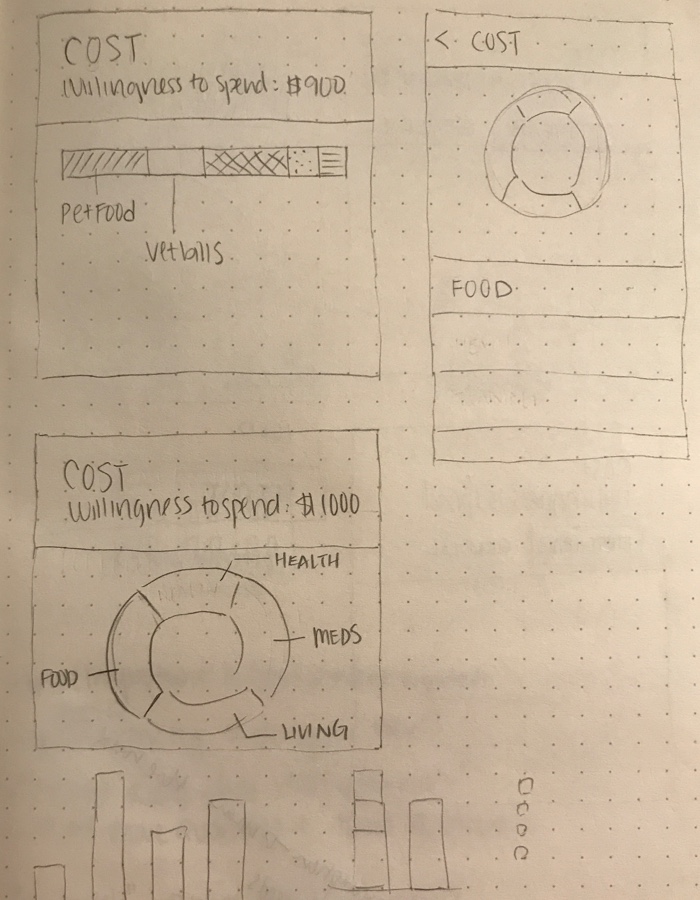 COST
Willingness to spend: $900
Pet Food
Vet bills
< COST
FOOD
COST
Willingness to spend: $1000
HEALTH
MEDS
FOOD
LIVING